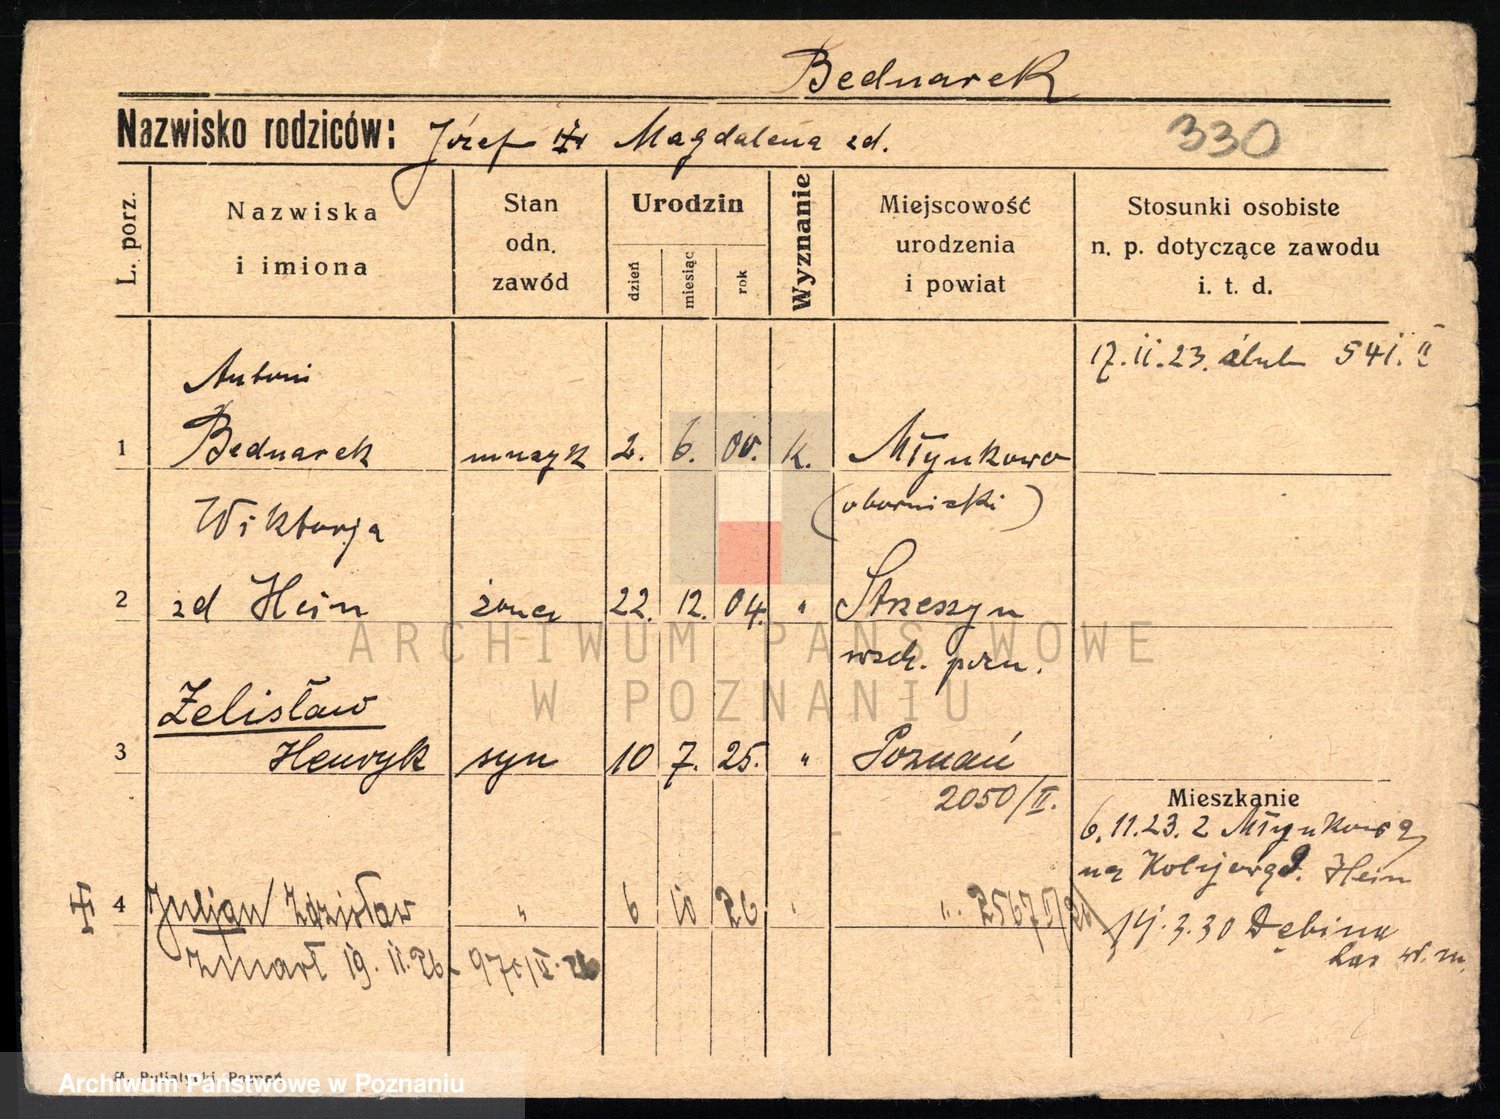 Bednarek
Nazwisko rodziców: Józef Magdalena zd.
330
L. porz.
Nazwiska i imiona
Stan odn. zawód
Urodzin
dzień
miesiąc
rok
Wyznanie
Miejscowość urodzenia i powiat
Stosunki osobiste n. p. dotyczące zawodu i. t. d.
17.11.23. ślub 541. II
Antoni
1 Bednarek muzyk 2. 6. 00. k. Młynkowo
(obornicki)
Wiktorja
2 zd Hein żona 22. 12. 04. " Strzeszyn
wsch. pozn.
Zelisław
3 Henryk syn 10 7. 25. " Poznań
2050/II.
Mieszkanie
6.11.23. z Młynkowa
na Hein
4 Julian Zdzisław " 6 10 26 " "
14.3.30 Dębina
Las
zmarł 19. 11. 26
ARCHIWUM PAŃSTWOWE
W POZNANIU
Archiwum Państwowe w Poznaniu